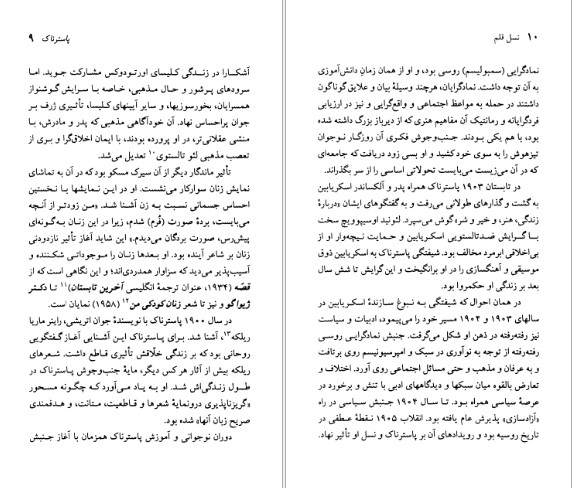 پاسترناک ۹
آشکارا در زندگی کلیسای اورتودوکس مشارکت جوید. اما
سرودهای پرشور و حال مذهبی، خاصه با سرایش گوشنواز
همسرایان، بخورسوزیها، و سایر آیینهای کلیسا، تأثیری ژرف بر
جوان پراحساس نهاد. آن خودآگاهی مذهبی که پدر و مادرش، با
منشی عقلانی‌تر، در او پرورده بودند، با ایمان اخلاق‌گرا و بری از
تعصب مذهبی لئو تالستوی۱۰ تعدیل می‌شد.
تأثیر ماندگار دیگر از آن سیرک مسکو بود که در آن به تماشای
نمایش زنان سوارکار می‌نشست. او در این نمایشها با نخستین
احساس جسمانی نسبت به زن آشنا شد. «من زودتر از آنچه
می‌بایست، بردهٔ صورت (فُرم) شدم، زیرا در این زنان به‌گونه‌ای
پیش‌رس، صورت بردگان می‌دیدم.» این شاید آغاز تأثیر نازدودنی
زنان بر شاعر آینده بود. او بعدها زنان را موجوداتی شکننده و
آسیب‌پذیر می‌دید که سزاوار همدردی‌اند؛ و این نگاهی است که از
قصّه (۱۹۳۴، عنوان ترجمهٔ انگلیسی آخرین تابستان)۱۱ تا دکتر
ژیواگو و نیز تا شعر زنان کودکی من۱۲ (۱۹۵۸) نمایان است.
در سال ۱۹۰۰ پاسترناک با نویسندهٔ جوان اتریشی، راینر ماریا
ریلکه۱۳، آشنا شد. برای پاسترناک این آشنایی آغاز گفتگویی
روحانی بود که بر زندگی خلّاقش تأثیری قاطع داشت. شعرهای
ریلکه بیش از آثار هر کس دیگر، مایهٔ جنب‌وجوش پاسترناک در
طول زندگی‌اش شد. او به یاد می‌آورد که چگونه مسحور
«گریزناپذیری درونمایهٔ شعرها و قاطعیت، متانت، و هدفمندی
صریح زبان آنها» شده بود.
دوران نوجوانی و آموزش پاسترناک همزمان با آغاز جنبش
۱۰ نسل قلم
نمادگرایی (سمبولیسم) روسی بود، و او از همان زمانِ دانش‌آموزی
به آن توجه داشت. نمادگرایان، هرچند وسیلهٔ بیان و علایق گوناگون
داشتند در حمله به مواعظ اجتماعی و واقع‌گرایی و نیز در ارزیابی
فردگرایانه و رمانتیک آن مفاهیم هنری که از دیرباز بزرگ داشته شده
بود، با هم یکی بودند. جنب‌وجوش فکری آن روزگار نوجوان
تیزهوش را به سوی خود کشید و او بسی زود دریافت که جامعه‌ای
که در آن می‌زیست می‌بایست تحولاتی اساسی را از سر بگذراند.
در تابستان ۱۹۰۳ پاسترناک همراه پدر و آلکساندر اسکریابین
به گشت و گذارهای طولانی می‌رفت و به گفتگوهای ایشان «دربارهٔ
زندگی، هنر، و خیر و شر» گوش می‌سپرد. لئونید اوسیپوویچ سخت
با گرایش ضدتالستویی اسکریابین و حمایت نیچه‌وار او از
بی‌اخلاقی ابرمرد مخالف بود. شیفتگی پاسترناک به اسکریابین ذوق
موسیقی و آهنگسازی را در او برانگیخت و این گرایش تا شش سال
بعد بر زندگی او حکمروا بود.
در همان احوال که شیفتگی به نبوغ سازندهٔ اسکریابین در
سالهای ۱۹۰۳ و ۱۹۰۴ مسیر خود را می‌پیمود، ادبیات و سیاست
نیز رفته‌رفته در ذهن او شکل می‌گرفت. جنبش نمادگرایی روسی
رفته‌رفته از توجه به نوآوری در سبک و امپرسیونیسم روی برتافت
و به عرفان و مذهب و حتی مسائل اجتماعی روی آورد. اختلاف و
تعارض بالقوه میان سبکها و دیدگاههای ادبی با تنش و برخورد در
عرصهٔ سیاسی همراه بود. تا سال ۱۹۰۴ جنبش سیاسی در راه
«آزادسازی» پذیرش عام یافته بود. انقلاب ۱۹۰۵ نقطهٔ عطفی در
تاریخ روسیه بود و رویدادهای آن بر پاسترناک و نسل او تأثیر نهاد.